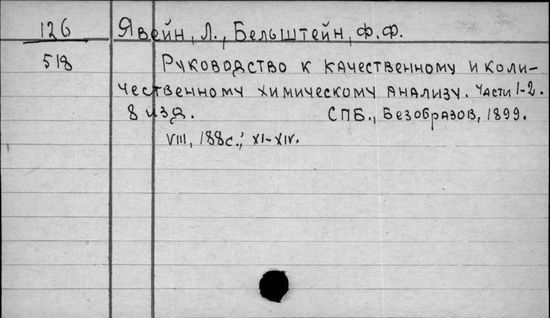 126 Явейн, Л., Бельштейн, Ф.Ф.
518 Руководство к качественному и коли-
чественному химическому анализу. Части 1-2.
8 изд. СПБ., Безобразов, 1899.
VIII, 188 с.; XI-XIV.